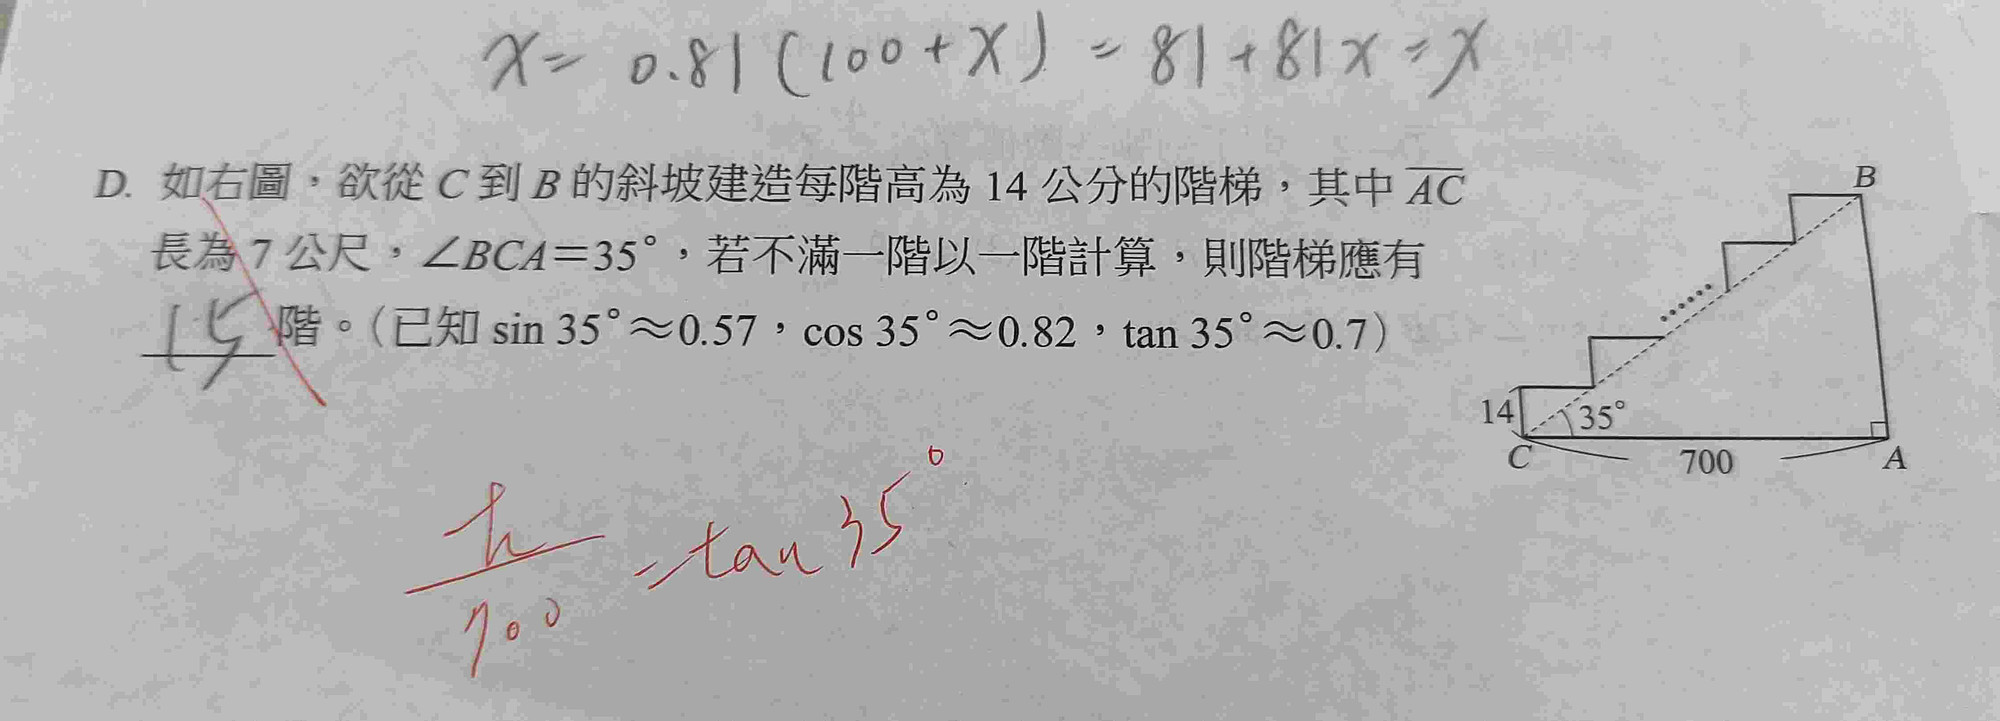 x = 0.81 (100 + x) = 81 + 81x = x
D. 如右圖，欲從 C 到 B 的斜坡建造每階高為 14 公分的階梯，其中 AC
長為 7 公尺，∠BCA＝35°，若不滿一階以一階計算，則階梯應有
15 階。（已知 sin 35°≈0.57，cos 35°≈0.82，tan 35°≈0.7）
B
14
35°
C
700
A
h/700 = tan 35°